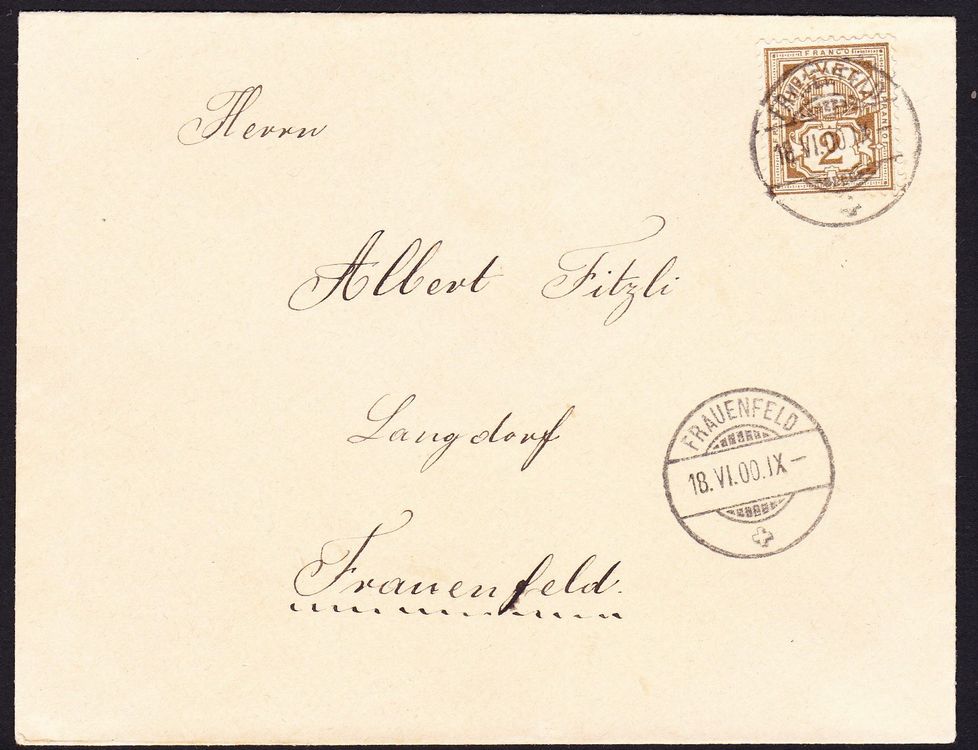 FRANCO
HELVETIA
FRANCO
18.VI.00.IX
2
Herrn
Albert Fitzli
Langdorf
FRAUENFELD
18.VI.00.IX–
Frauenfeld.